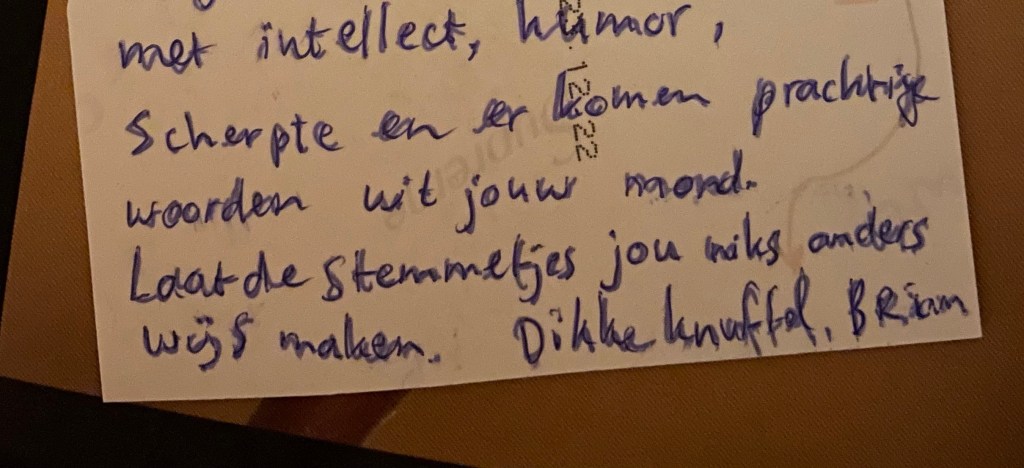 met intellect, humor,
scherpte en er komen prachtige
woorden uit jouw mond.
Laat de stemmetjes jou niks anders
wijs maken. Dikke knuffel, BRiam